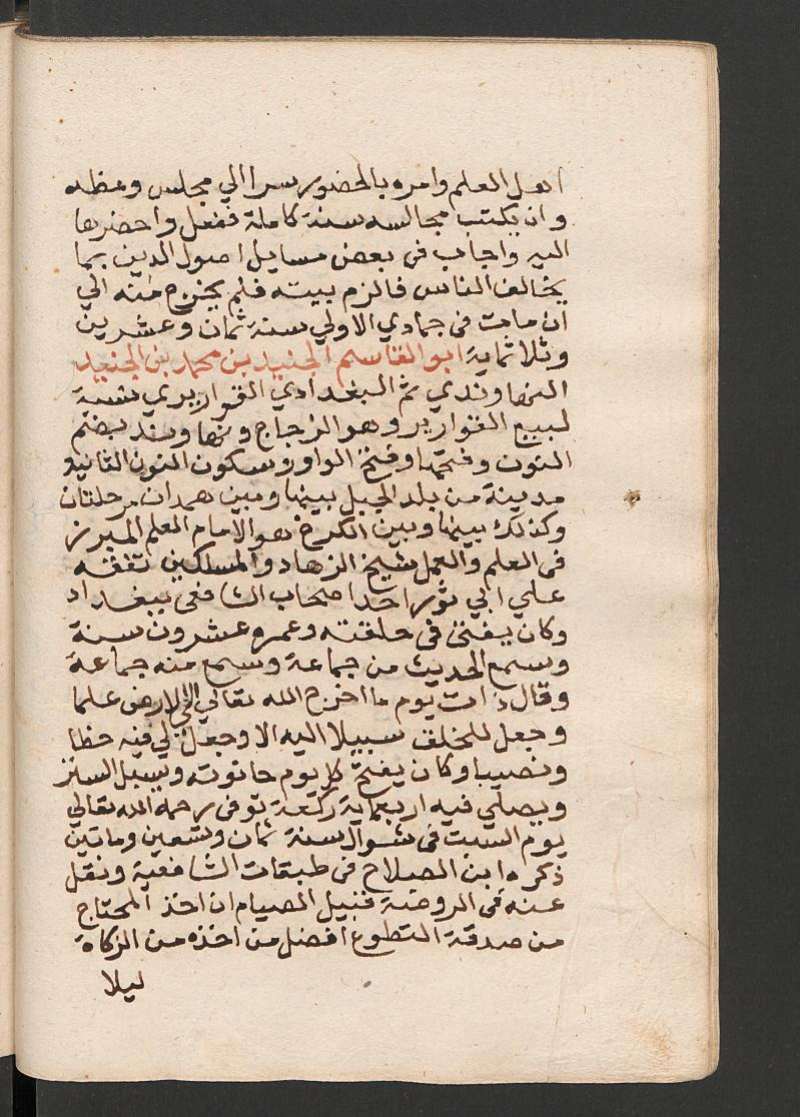 اهل العلم وامره بالحضور سرا الي مجلس وعظه
وان يكتب مجالسه سنة كاملة ففعل واحضرها
اليه واجاب فى بعض مسايل اصول الدين بما
يخالف الناس فالزم بيته فلم يخرج منه الي
ان مات فى جمادي الاولي سنة ثمان وعشرين
وثلاثماية ابو القاسم الجنيد بن محمد بن الجنيد
النهاوندي ثم البغدادي القواريري نسبة
لبيع القوارير وهو الزجاج ونهاوند بضم
النون وفتحها وفتح الواو وسكون النون الثانية
مدينة من بلد الجبل بينها وبين همدان مرحلتان
وكذلك بينها وبين الكرخ هو الامام المعلم المبرز
فى العلم والعمل شيخ الزهاد والمسلكين تفقه
علي ابي ثور احد اصحاب الشافعى ببغداد
وكان يفتى فى حلقته وعمره عشرون سنة
وسمع الحديث من جماعة وسمع منه جماعة
وقال ذات يوم ما اخرج الله تعالي الي الارض علما
وجعل للخلق سبيلا اليه الا وجعل لي فيه حظا
ونصيبا وكان يفتح كل يوم حانوته ويسبل الستر
ويصلي فيه اربعماية ركعة توفى رحمه الله تعالي
يوم السبت فى شوال سنة ثمان وتسعين وماتين
ذكره ابن الصلاح فى طبقات الشافعية ونقل
عنه فى الروضة قبيل الصيام ان اخذ المحتاج
من صدقة التطوع افضل من اخذه من الزكاة
ليلا